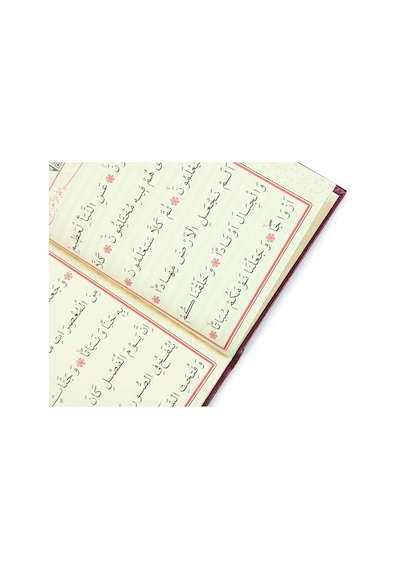 عَنِ النَّبَأِ الْعَظِيمِ
هُمْ فِيهِ مُخْتَلِفُونَ كَلَّا
سَيَعْلَمُونَ ثُمَّ كَلَّا سَيَعْلَمُونَ
اَلَمْ نَجْعَلِ الْاَرْضَ مِهَادًا
وَالْجِبَالَ اَوْتَادًا وَخَلَقْنَاكُمْ
اَزْوَاجًا وَجَعَلْنَا نَوْمَكُمْ سُبَاتًا
مِنَ الْمُعْصِرَاتِ
بِهِ حَبًّا وَنَبَاتًا وَجَنَّاتٍ
اِنَّ يَوْمَ الْفَصْلِ كَانَ
يُنْفَخُ فِي الصُّورِ
وَفُتِحَتِ